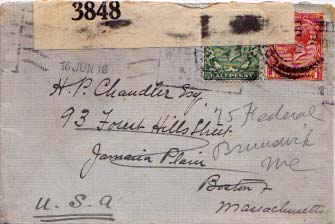 3848
16 JUN 18
HALFPENNY
H. P. Chandler Esq.
93 Forest Hills Street
75 Federal
Jamaica Plain
Brunswick
Me
Boston
Massachusetts
U. S. A